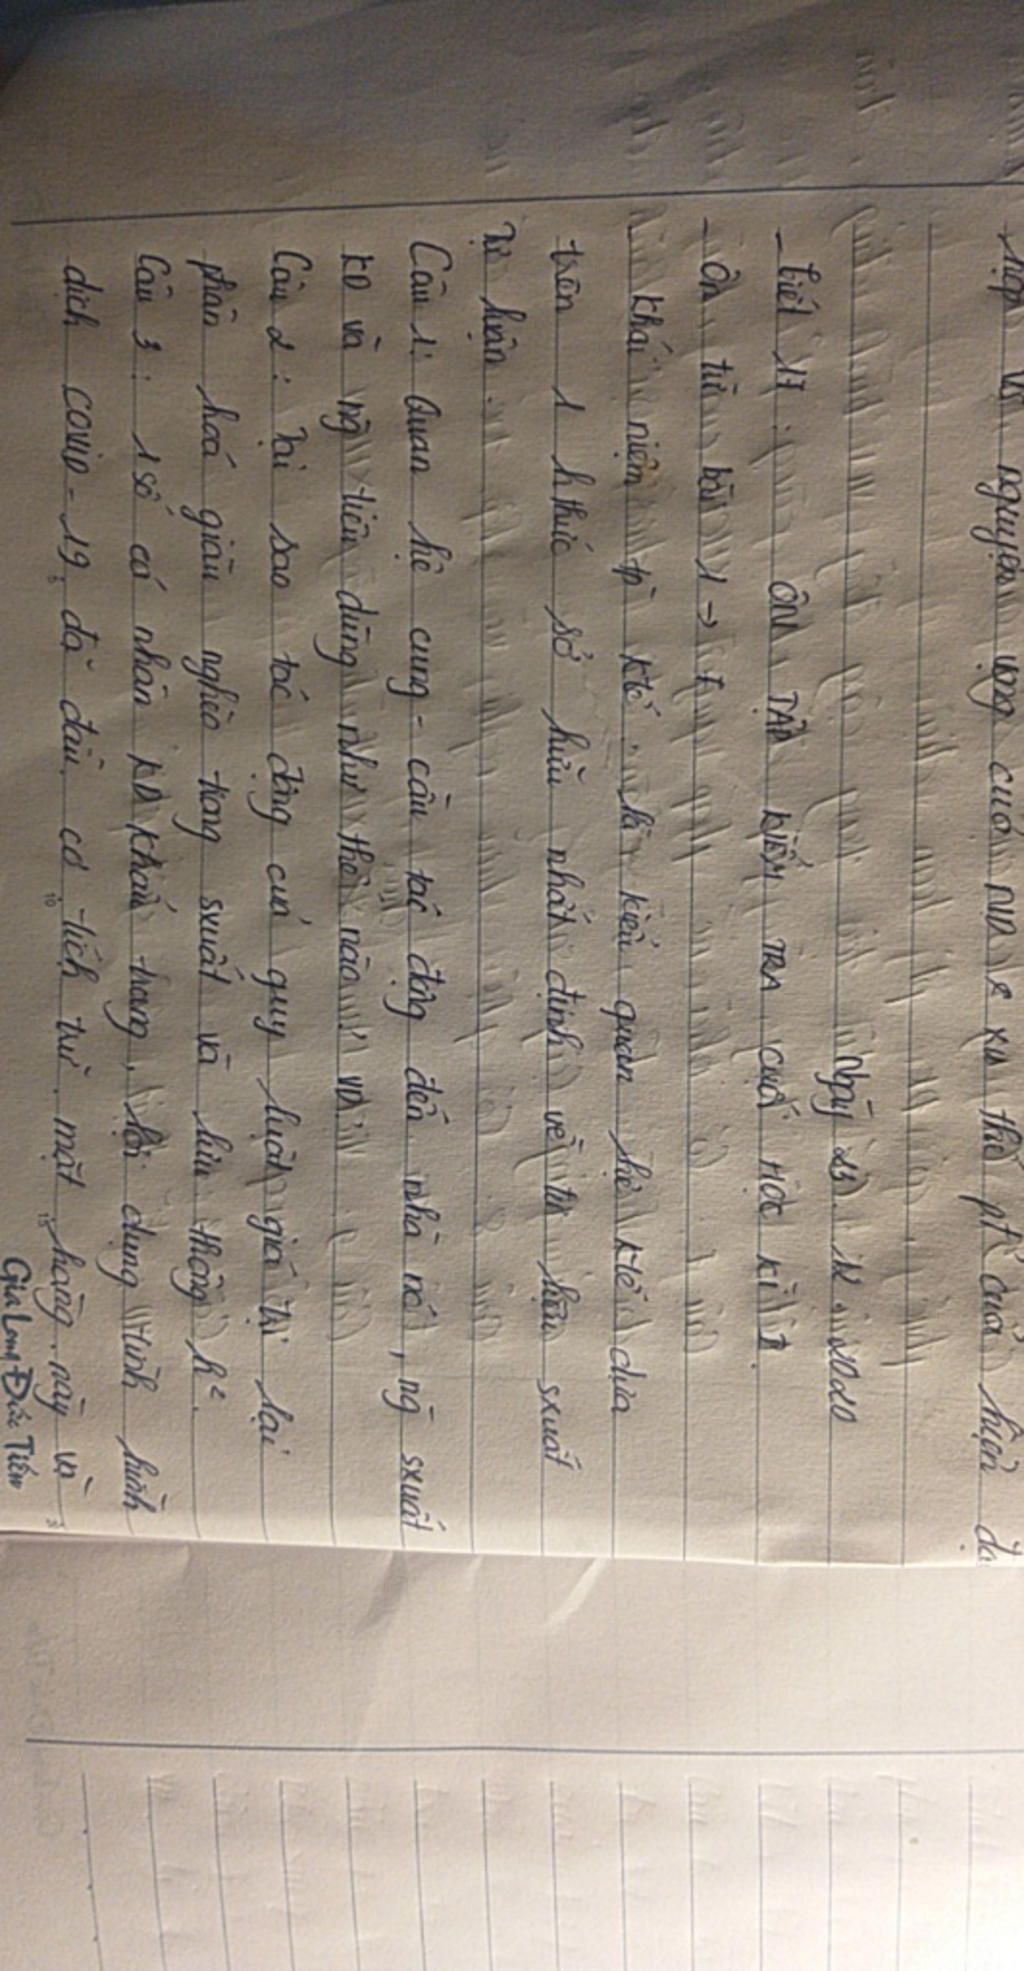 hợp vs nguyện vọng của ND & XH thì pt của hiện đạ
Ngày 23. 12. 2020
- Tiết 17: ÔN TẬP KIỂM TRA CUỐI HỌC KÌ I.
- Ôn từ bài 1 → 7
Khái niệm tp ktế: là kiểu quan hệ ktế dựa
trên 1 hthức sở hữu nhất định về tư liệu sxuất
Tự luận.
Câu 1: Quan hệ cung - cầu tác động đến nhà nc, ng sxuất
KD và ng tiêu dùng như thế nào? VD:
Câu 2: Tại sao tác động của quy luật giá trị lại
phân hoá giàu nghèo trong sxuất và lưu thông h².
Câu 3: 1 số cá nhân KD khẩu trang, lợi dụng tình hình
dịch COVID-19, đã đầu cơ tích trữ mặt hàng này và
Gia Long Đức Tiến